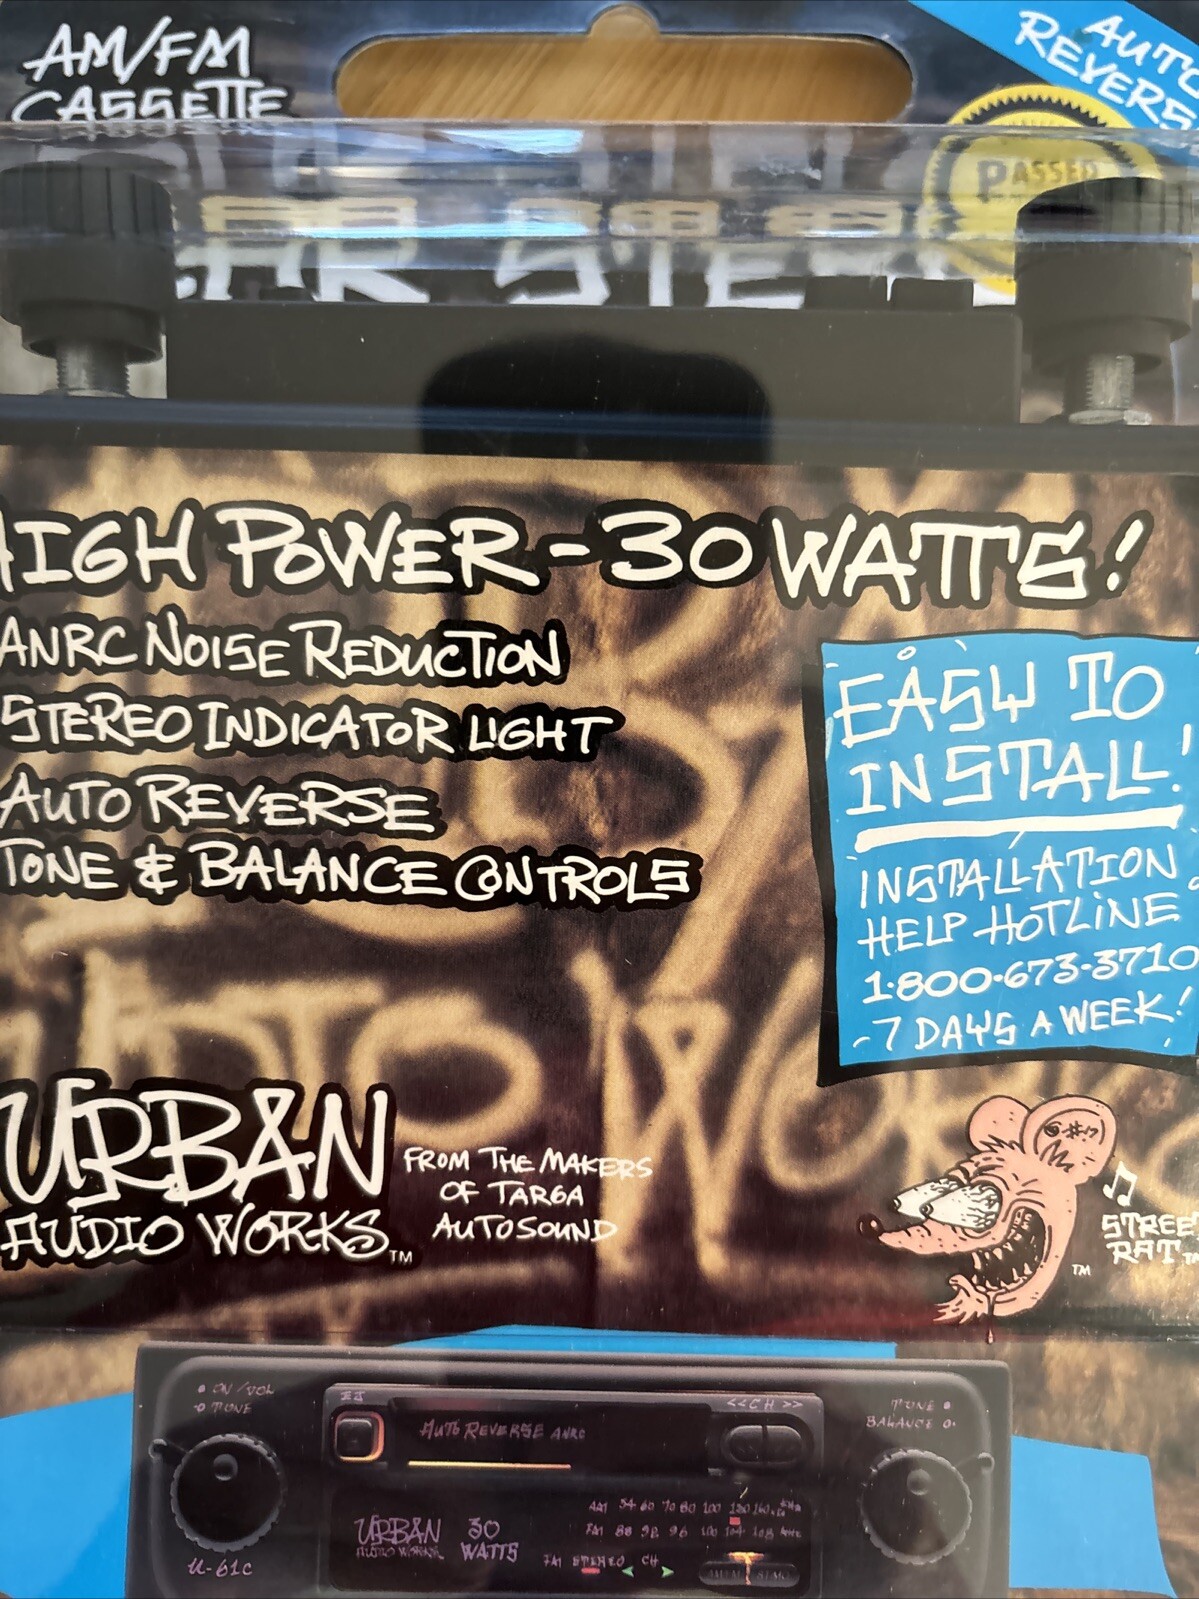 AM/FM
CASSETTE
AUTO
REVERS
PASSED
CAR STE
HIGH POWER - 30 WATTS!
ANRC NOISE REDUCTION
STEREO INDICATOR LIGHT
AUTO REVERSE
TONE & BALANCE CONTROLS
EASY TO
INSTALL!
INSTALLATION
HELP HOTLINE
1·800·673·3710
7 DAYS A WEEK!
URBAN
AUDIO WORKS™
FROM THE MAKERS
OF TARGA
AUTOSOUND
@#!?
STREET
RAT™
™
ON/VOL
TONE
EJ
AUTO REVERSE ANRC
<<CH>>
TUNE
BALANCE
URBAN
AUDIO WORKS
30
WATTS
AM 54 60 70 80 100 130 160 KHz
FM 88 92 96 100 104 108 MHz
FM STEREO CH
U-61C